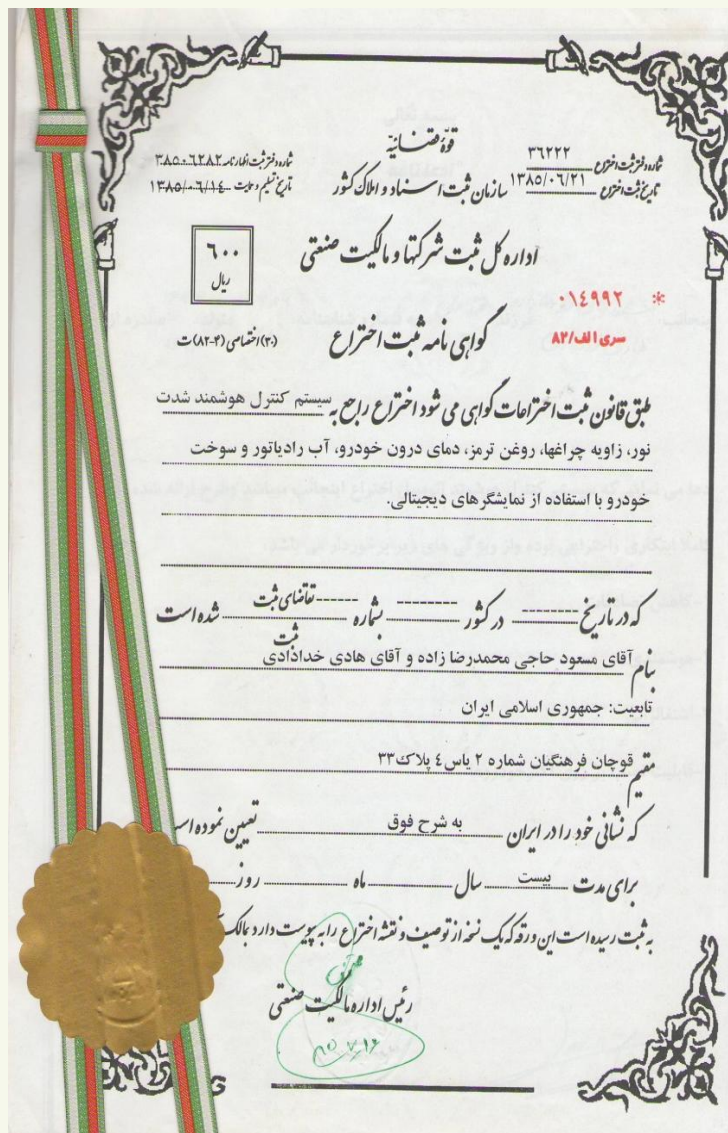 قوّهٔ قضائیّه
شماره دفتر ثبت اختراع ٣٦٢٢٢
شماره دفتر ثبت اظهارنامه ٣٨٥٠٠٦٢٨٢
تاریخ ثبت اختراع ١٣٨٥/٠٦/٢١
سازمان ثبت اسناد و املاک کشور
تاریخ تسلیم و حمایت ١٣٨٥/٠٦/١٤
اداره کل ثبت شرکتها و مالکیت صنعتی
٦٠٠
ریال
* ٠١٤٩٩٢
سری الف/٨٢
گواهی نامه ثبت اختراع
(٣٠) اختصاصی (٤-٨٢) ت
طبق قانون ثبت اختراعات گواهی می شود اختراع راجع به سیستم کنترل هوشمند شدت
نور، زاویه چراغها، روغن ترمز، دمای درون خودرو، آب رادیاتور و سوخت
خودرو با استفاده از نمایشگرهای دیجیتالی.
که در تاریخ -------- در کشور -------- بشماره ------ تقاضای ثبت شده است
ثبت
بنام آقای مسعود حاجی محمدرضا زاده و آقای هادی خدادادی
تابعیت: جمهوری اسلامی ایران
مقیم قوچان فرهنگیان شماره ٢ یاس ٤ پلاک ٣٣
که نشانی خود را در ایران به شرح فوق تعیین نموده
برای مدت بیست سال ماه روز
به ثبت رسیده است این ورقه که یک نسخه از توصیف و نقشه اختراع را به پیوست دارد بمالک
رئیس اداره مالکیت صنعتی